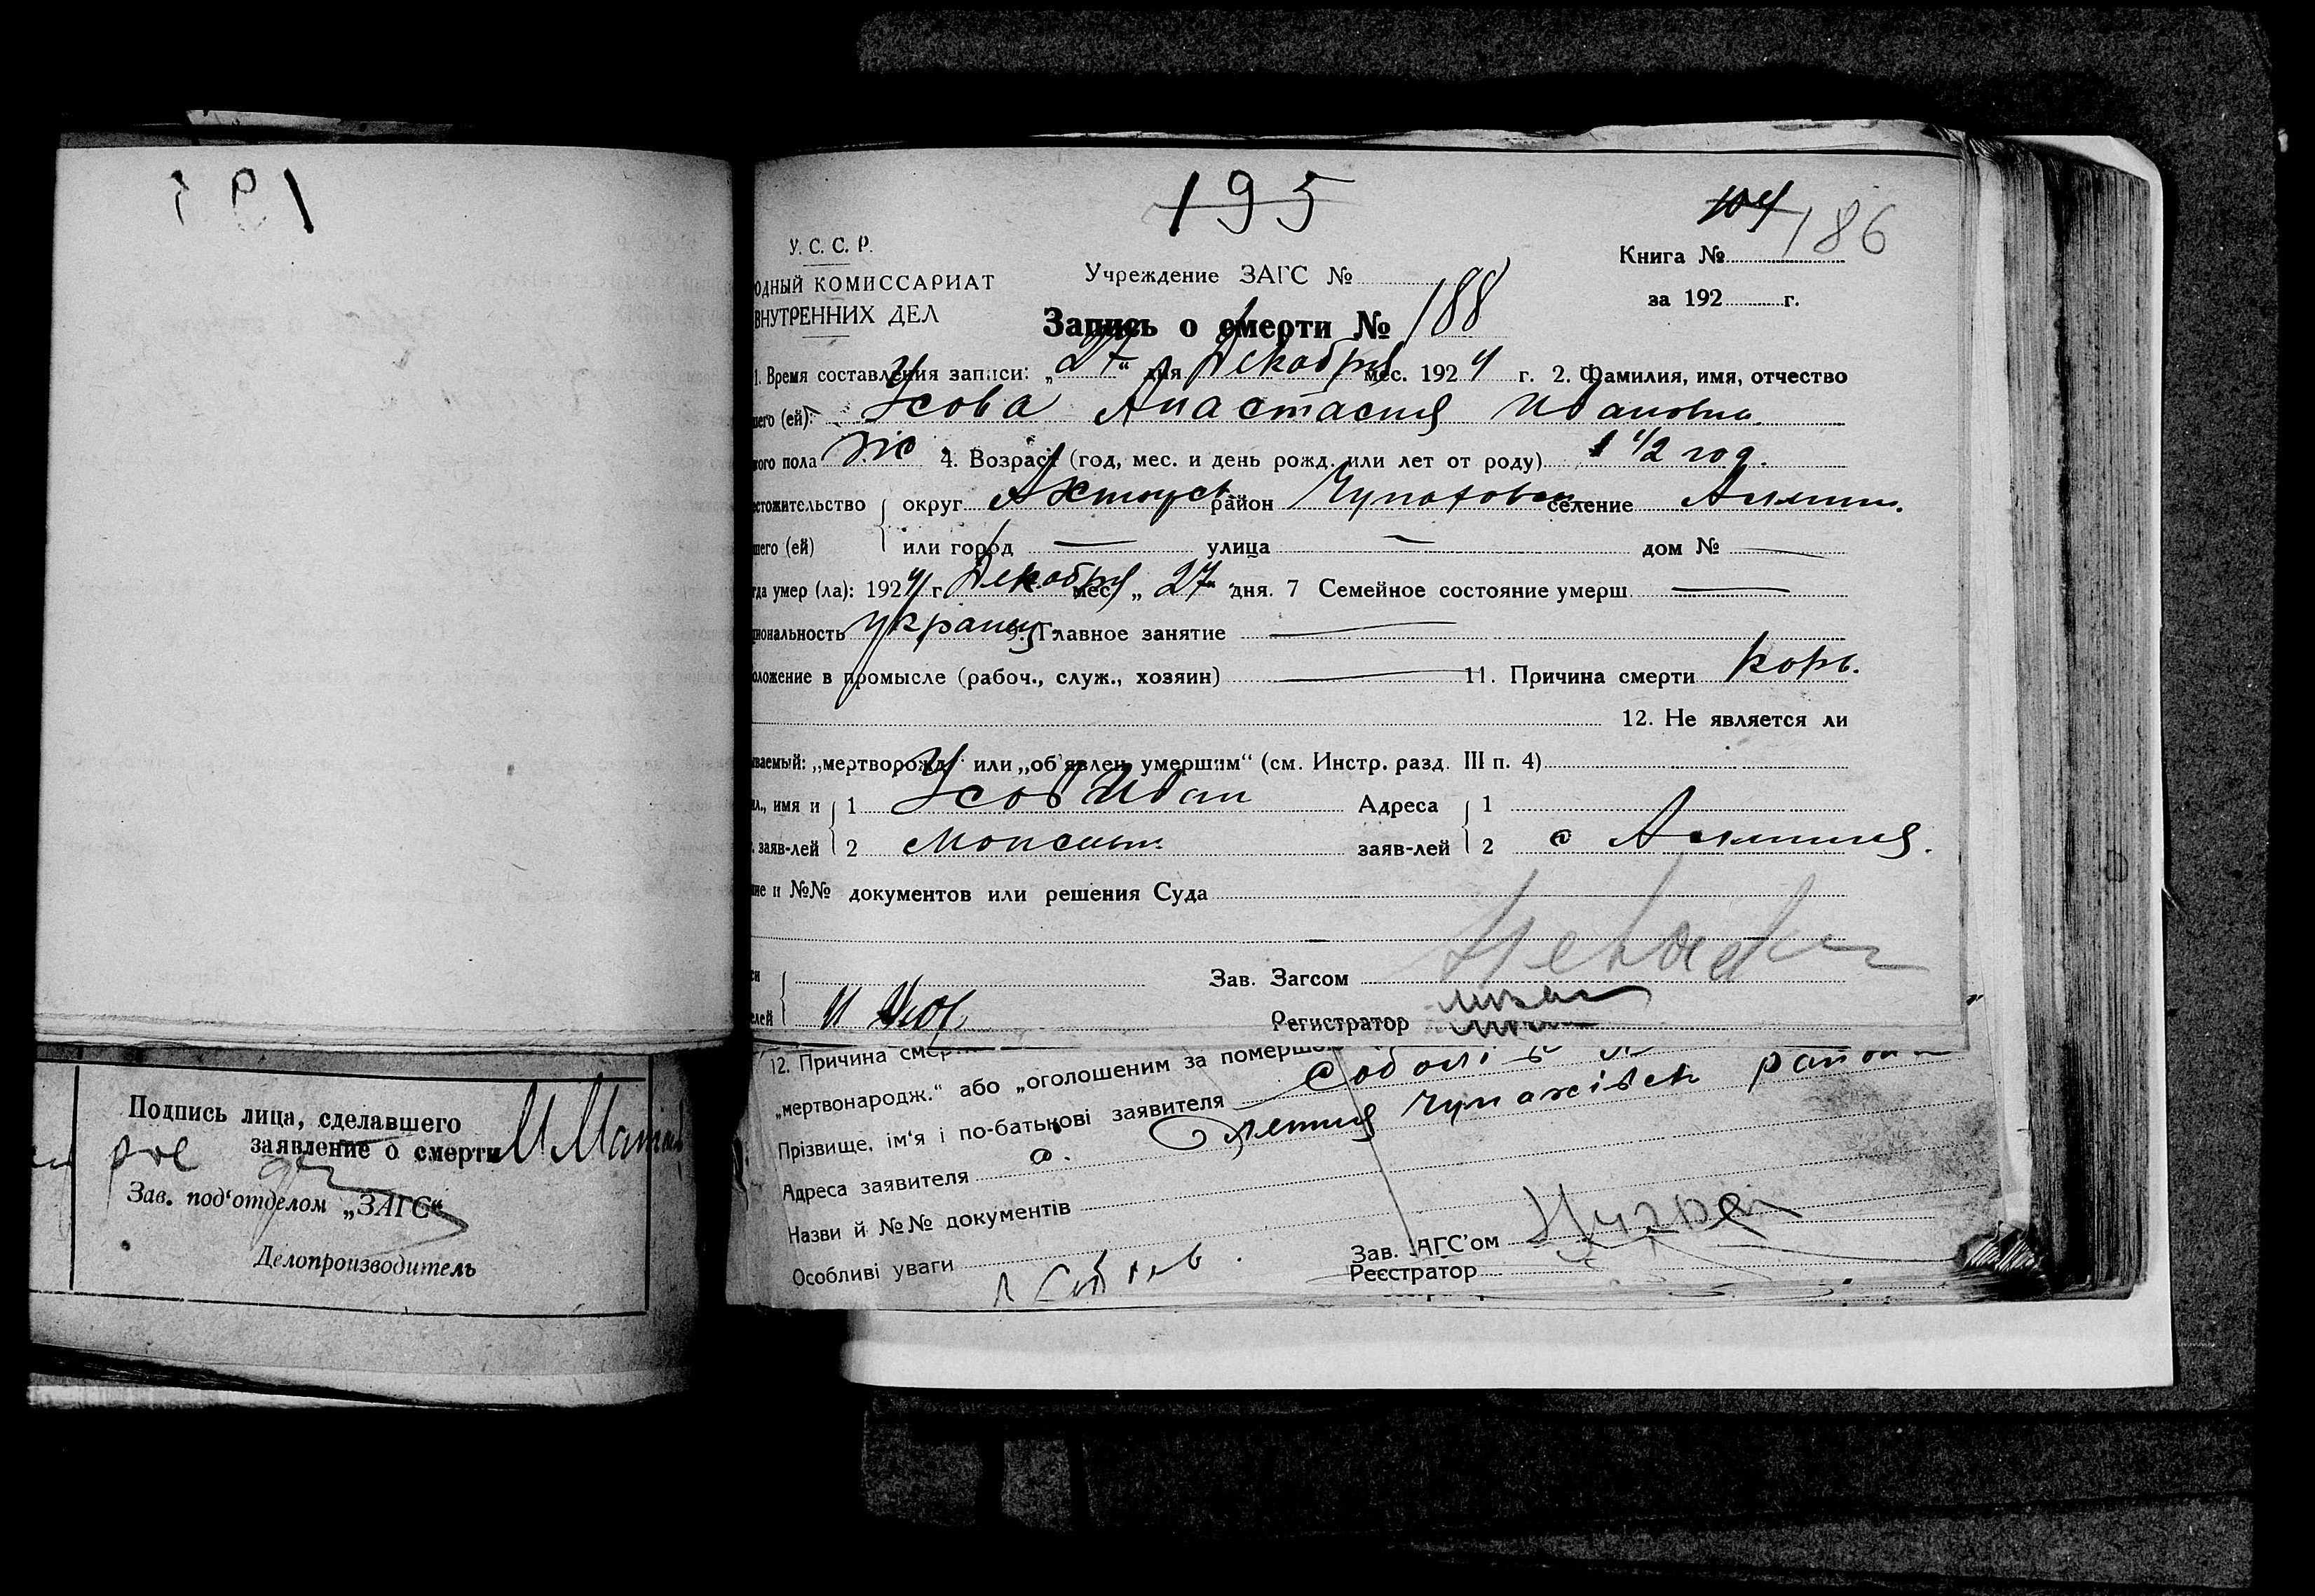 195
104 186
У. С. С. Р.
Книга №
ОДНЫЙ КОМИССАРИАТ
Учреждение ЗАГС №
за 192 г.
ВНУТРЕННИХ ДЕЛ
Запись о смерти № 188
1. Время составления записи: „27“ дня Декабря мес. 1924 г. 2. Фамилия, имя, отчество
шего (ей): Усова Анастасия Ивановна
ного пола жс 4. Возраст (год, мес. и день рожд. или лет от роду) 1 1/2 год.
естожительство округ Ахтырск район Чупаховск селение
шего (ей) или город — улица — дом № —
да умер (ла): 1924 г. Декабря мес. „27“ дня. 7 Семейное состояние умерш. —
циональность украин 9. Главное занятие —
оложение в промысле (рабоч., служ., хозяин) — 11. Причина смерти корь.
12. Не является ли
ваемый: „мертворожд“ или „об'явлен умершим“ (см. Инстр. разд. III п. 4)
ил., имя и 1 Усов Иван Адреса 1
. заяв-лей 2 заяв-лей 2 с
ние и №№ документов или решения Суда
Зав. Загсом
елей И Усов Регистратор
12. Причина смер
„мертвонародж.“ або „оголошеним за померш
Прізвище, ім'я і по-батькові заявителя
Адреса заявителя с. Чупахівск района
Назви й №№ документів
Особливі уваги
Зав. АГС'ом
Реєстратор
Подпись лица, сделавшего
заявление о смерти
Зав. под'отделом „ЗАГС“
Делопроизводитель